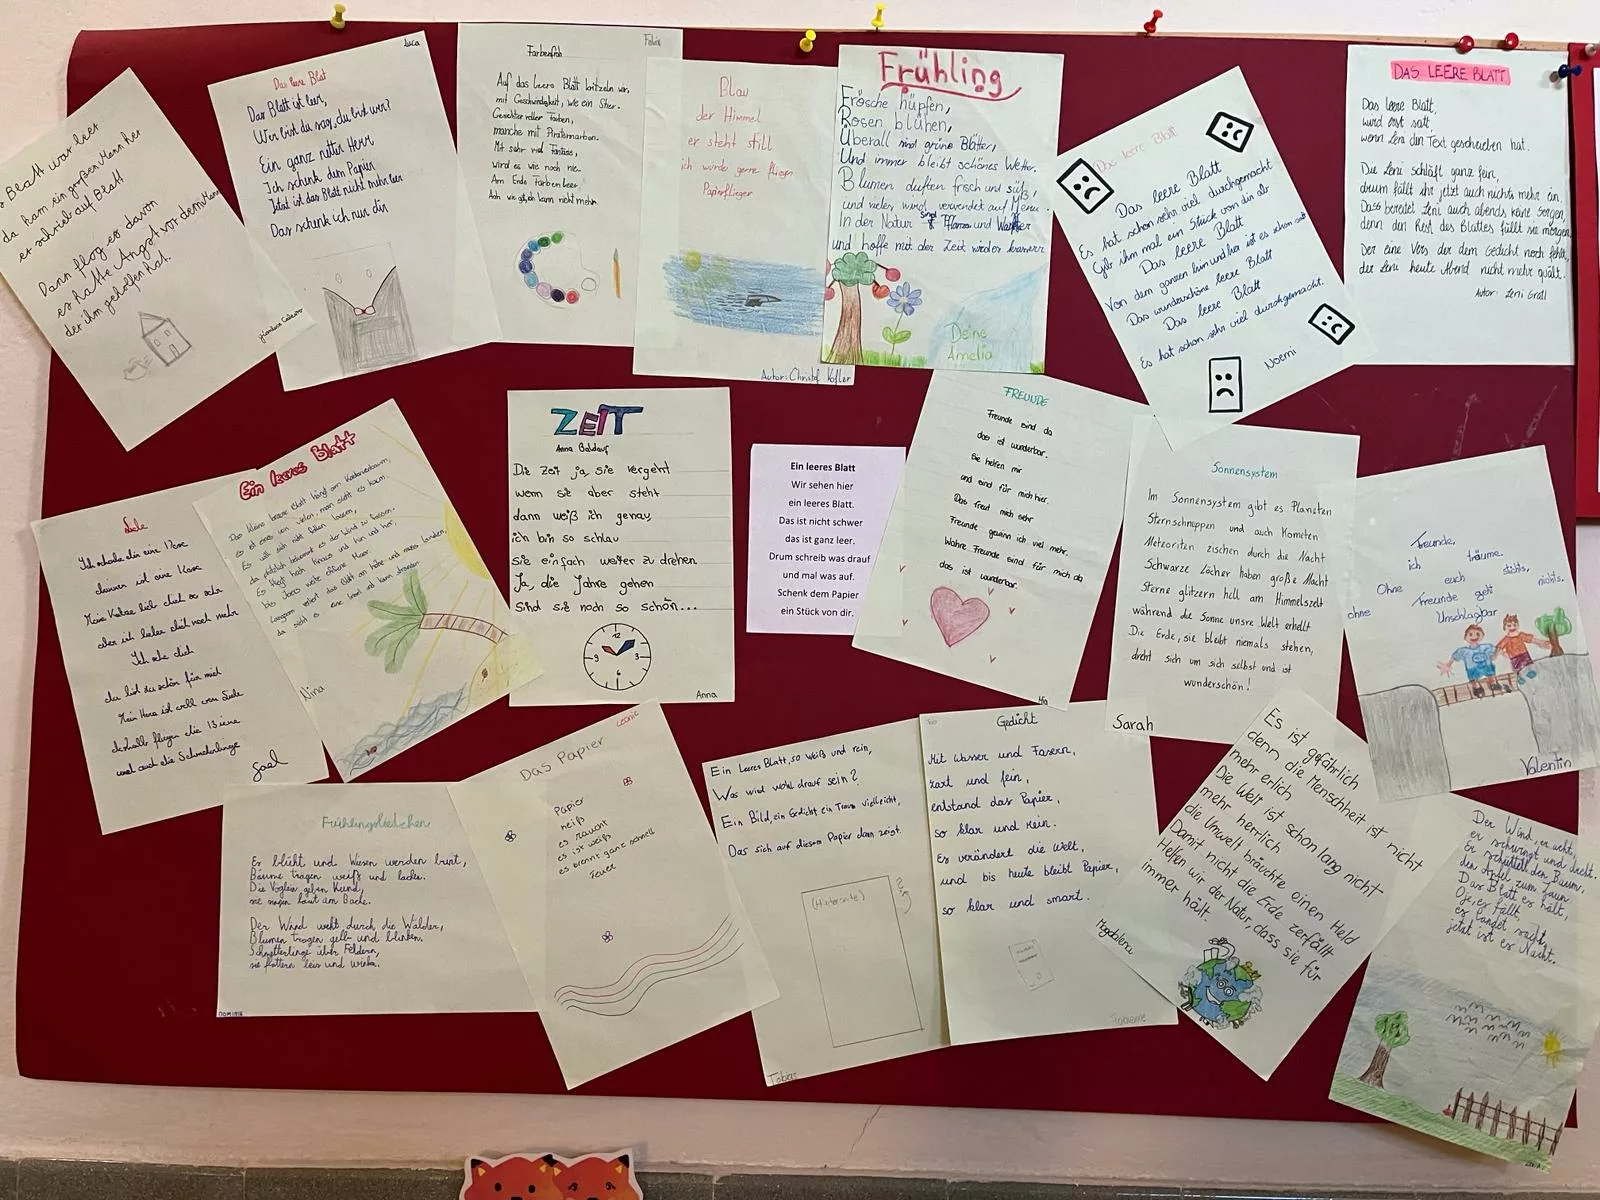 Blatt war leer
da kam ein großen Mann her
er schrieb auf Blatt
Dann flog er davon
es hatte Angst vor dem
der ihm geholfen hat.
Luca
Das leere Blat
Das Blatt ist leer,
Wer bist du sag, du bist wer?
Ein ganz netter Herr
Ich schenk dem Papier
Jetzt ist das Blatt nicht mehr leer
Das schenk ich nur dir
Felix
Farbenfroh
Auf das leere Blatt kritzeln wir,
mit Geschwindigkeit, wie ein Stier.
Gesichter voller Farben,
manche mit Piratennarben.
Mit sehr viel Fantasie,
wird es wie noch nie.
Am Ende Farbenleer,
Ach wie gehts kann nicht mehr.
Blau
der Himmel
er steht still
ich würde gerne fliegen
Papierflieger
Autor: Christof Kofler
Frühling
Frösche hüpfen,
Rosen blühen,
Überall sind grüne Blätter,
Und immer bleibt schönes Wetter.
Blumen duften frisch und süß,
und vieles wird verwendet auf Menü.
In der Natur sind Pflanzen und Wasser
und hoffe mit der Zeit wieder krasser
Deine
Amelia
Das leere Blatt
Das leere Blatt
Es hat schon sehr viel durchgemacht
Gib ihm mal ein Stück von dir ab
Das leere Blatt
Von dem ganzen hin und her ist es schon satt
Das wunderschöne leere Blatt
Das leere Blatt
Es hat schon sehr viel durchgemacht.
Noemi
DAS LEERE BLATT
Das leere Blatt,
wird erst satt
wenn Leni den Text geschrieben hat.
Die Leni schläft ganz fein,
drum fällt ihr jetzt auch nichts mehr ein.
Dass bereitet Leni auch abends keine Sorgen,
denn den Rest des Blattes füllt sie morgen
Der eine Vers der dem Gedicht noch fehlt,
der Leni heute Abend nicht mehr quält.
Autor: Leni Grall
Liebe
Ich schenke dir eine Rose
deiner ist eine Rose
Meine Katze liebt dich so sehr
aber ich liebe dich noch mehr
Ich sehe dich
du bist zu schön für mich
Mein Herz ist voll von Liebe
deshalb fliegen die Biene
und auch die Schmetterlinge
Gael
Ein leeres Blatt
Das kleine leere Blatt hängt am Kastanienbaum,
es ist eines von vielen, man sieht es kaum.
Es will sich nicht fallen lassen,
da plötzlich bekommt es der Wind zu fassen.
Es fliegt hoch hinaus und hin und her,
bis übers weite offene Meer
Langsam verliert das Blatt an höhe und muss landen,
da sieht es eine Insel und kann stranden
Nina
ZEIT
Anna Baldauf
Die Zeit ja, sie vergeht
wenn sie aber steht
dann weiß ich genau,
ich bin so schlau
sie einfach weiter zu drehen
Ja, die Jahre gehen
Sind sie noch so schön...
12
3
6
9
Anna
Ein leeres Blatt
Wir sehen hier
ein leeres Blatt.
Das ist nicht schwer
das ist ganz leer.
Drum schreib was drauf
und mal was auf.
Schenk dem Papier
ein Stück von dir.
FREUNDE
Freunde sind da
das ist wunderbar.
Sie helfen mir
und sind für mich hier.
Das freut mich sehr
Freunde gewinn ich viel mehr.
Wahre Freunde sind für mich da
das ist wunderbar.
Sonnensystem
Im Sonnensystem gibt es Planeten
Sternschnuppen und auch Kometen
Meteoriten zischen durch die Nacht
Schwarze Löcher haben große Macht
Sterne glitzern hell am Himmelszelt
während die Sonne unsre Welt erhellt
Die Erde, sie bleibt niemals stehen,
dreht sich um sich selbst und ist
wunderschön!
Sarah
Freunde,
ich träume.
Ohne euch stehts,
ohne Freunde geht nichts.
Unschlagbar
Valentin
Frühlingsliedchen
Es blüht und Wiesen werden bunt,
Bäume tragen weiß und laden.
Die Vöglein geben Kund,
sie singen laut am Bache.
Der Wind weht durch die Wälder,
Blumen tragen gelb und blinken.
Schmetterlinge über Feldern,
sie flattern leis und winken.
Leonie
Das Papier
Papier
heiß
es raucht
es ist weiß
es brennt ganz schnell
Feuer
Ein Leeres Blatt, so weiß und rein,
Was wird wohl drauf sein?
Ein Bild, ein Gedicht ein Traum vielleicht,
Das sich auf diesem Papier dann zeigt.
(Hinterseite)
Tobias
Gedicht
Mit Wasser und Fasern,
zart und fein,
entstand das Papier,
so klar und rein.
Es verändert die Welt,
und bis heute bleibt Papier,
so klar und smart.
Magdalena
Es ist gefährlich
denn die Menschheit ist nicht
mehr erlich
Die Welt ist schon lang nicht
mehr herrlich
die Umwelt bräuchte einen Held
Damit nicht die Erde zerfällt
Helfen wir der Natur, dass sie für
immer hält.
Der Wind, er weht,
er schwingt und dreht.
Er schüttelt den Baum,
den Apfel zum Zaun
Das Blatt es hält,
Oje, es fällt.
es landet sacht,
jetzt ist es Nacht.